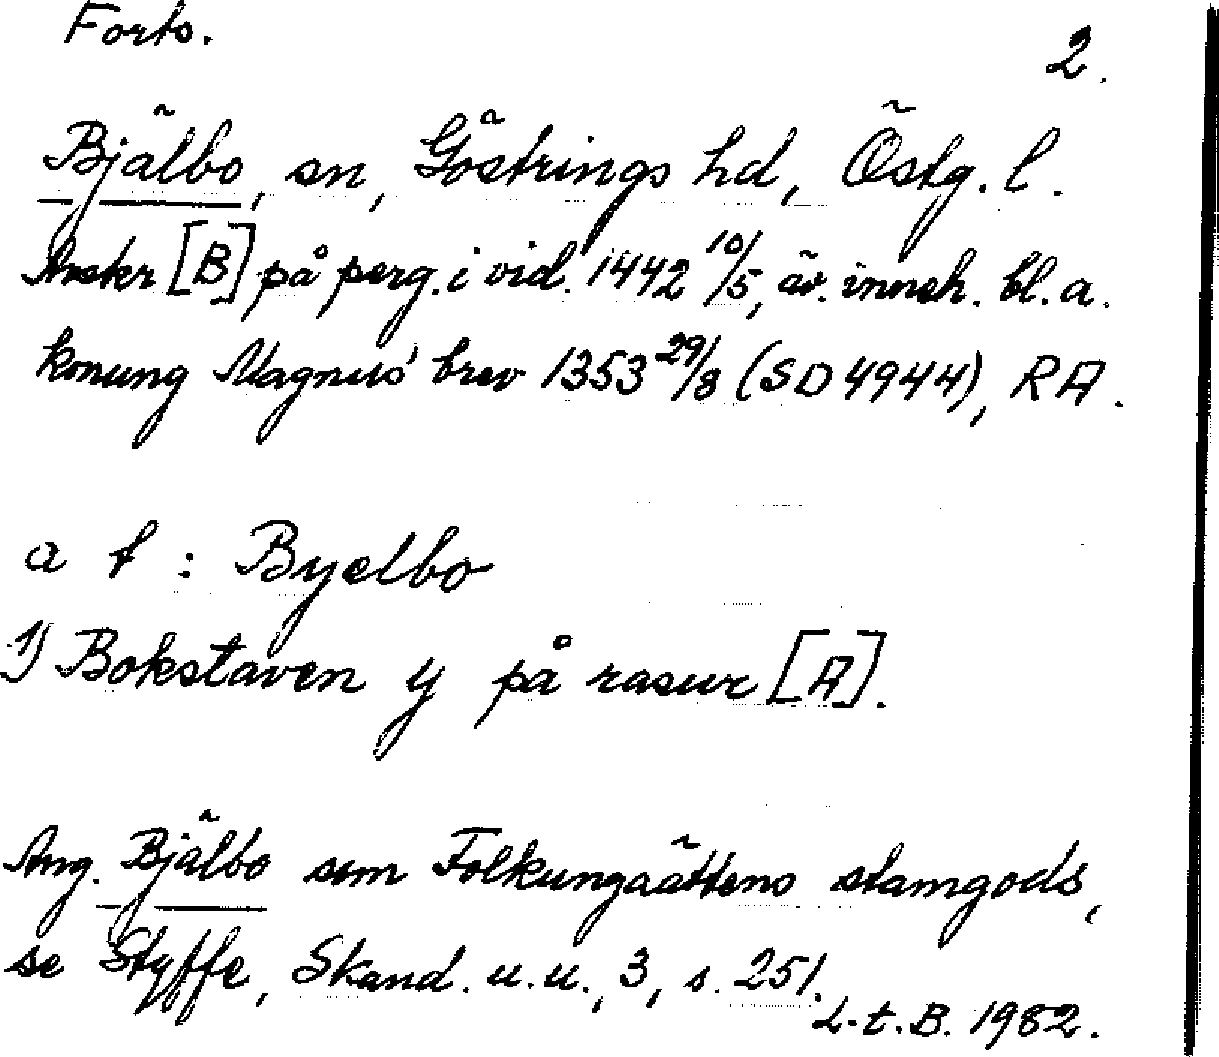 Forts.
2.
Bjälbo, sn, Göstrings hd, Östg. l.
Avskr [B] på perg. i vid. 1442 10/5, äv. inneh. bl. a.
konung Magnus' brev 1353 29/8 (SD 4944), RA.
a f : Byelbo
1) Bokstaven y på rasur [A].
Ang. Bjälbo som Folkungaättens stamgods,
se Styffe, Skand. u. u., 3, s. 251.
L. t. B. 1982.